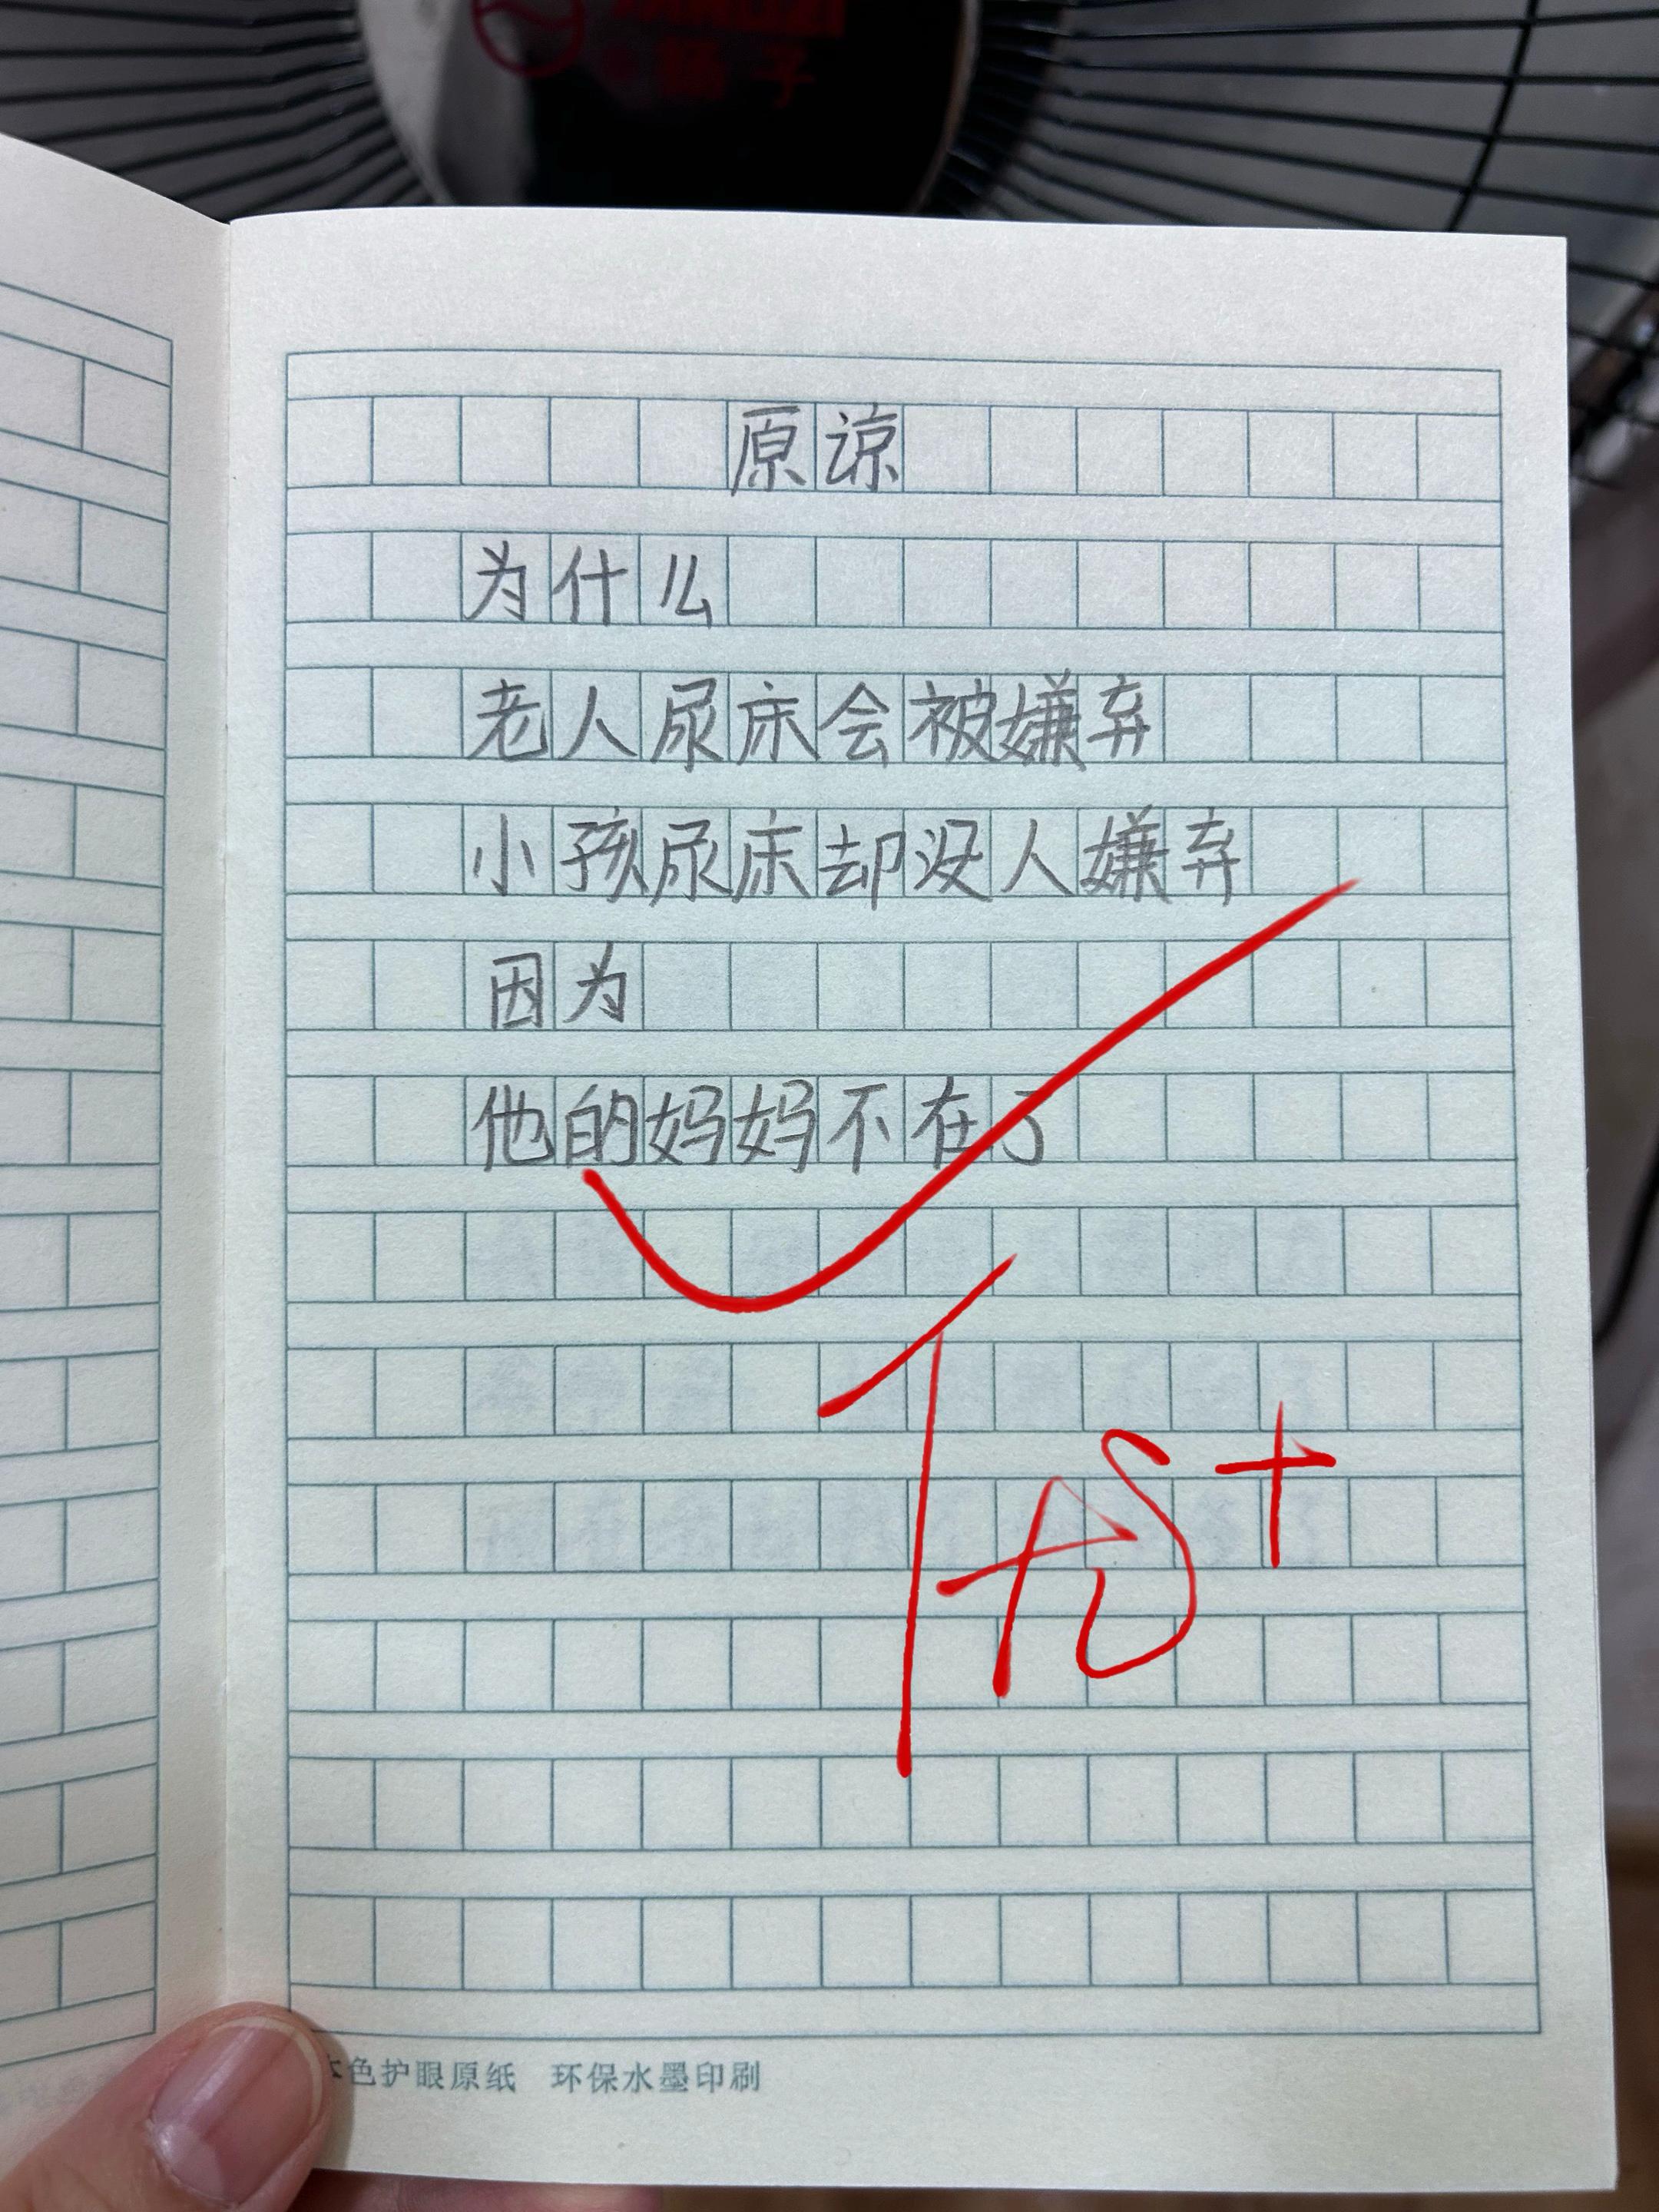 扬子
原谅
为什么
老人尿床会被嫌弃
小孩尿床却没人嫌弃
因为
他的妈妈不在了
优+
色护眼原纸 环保水墨印刷